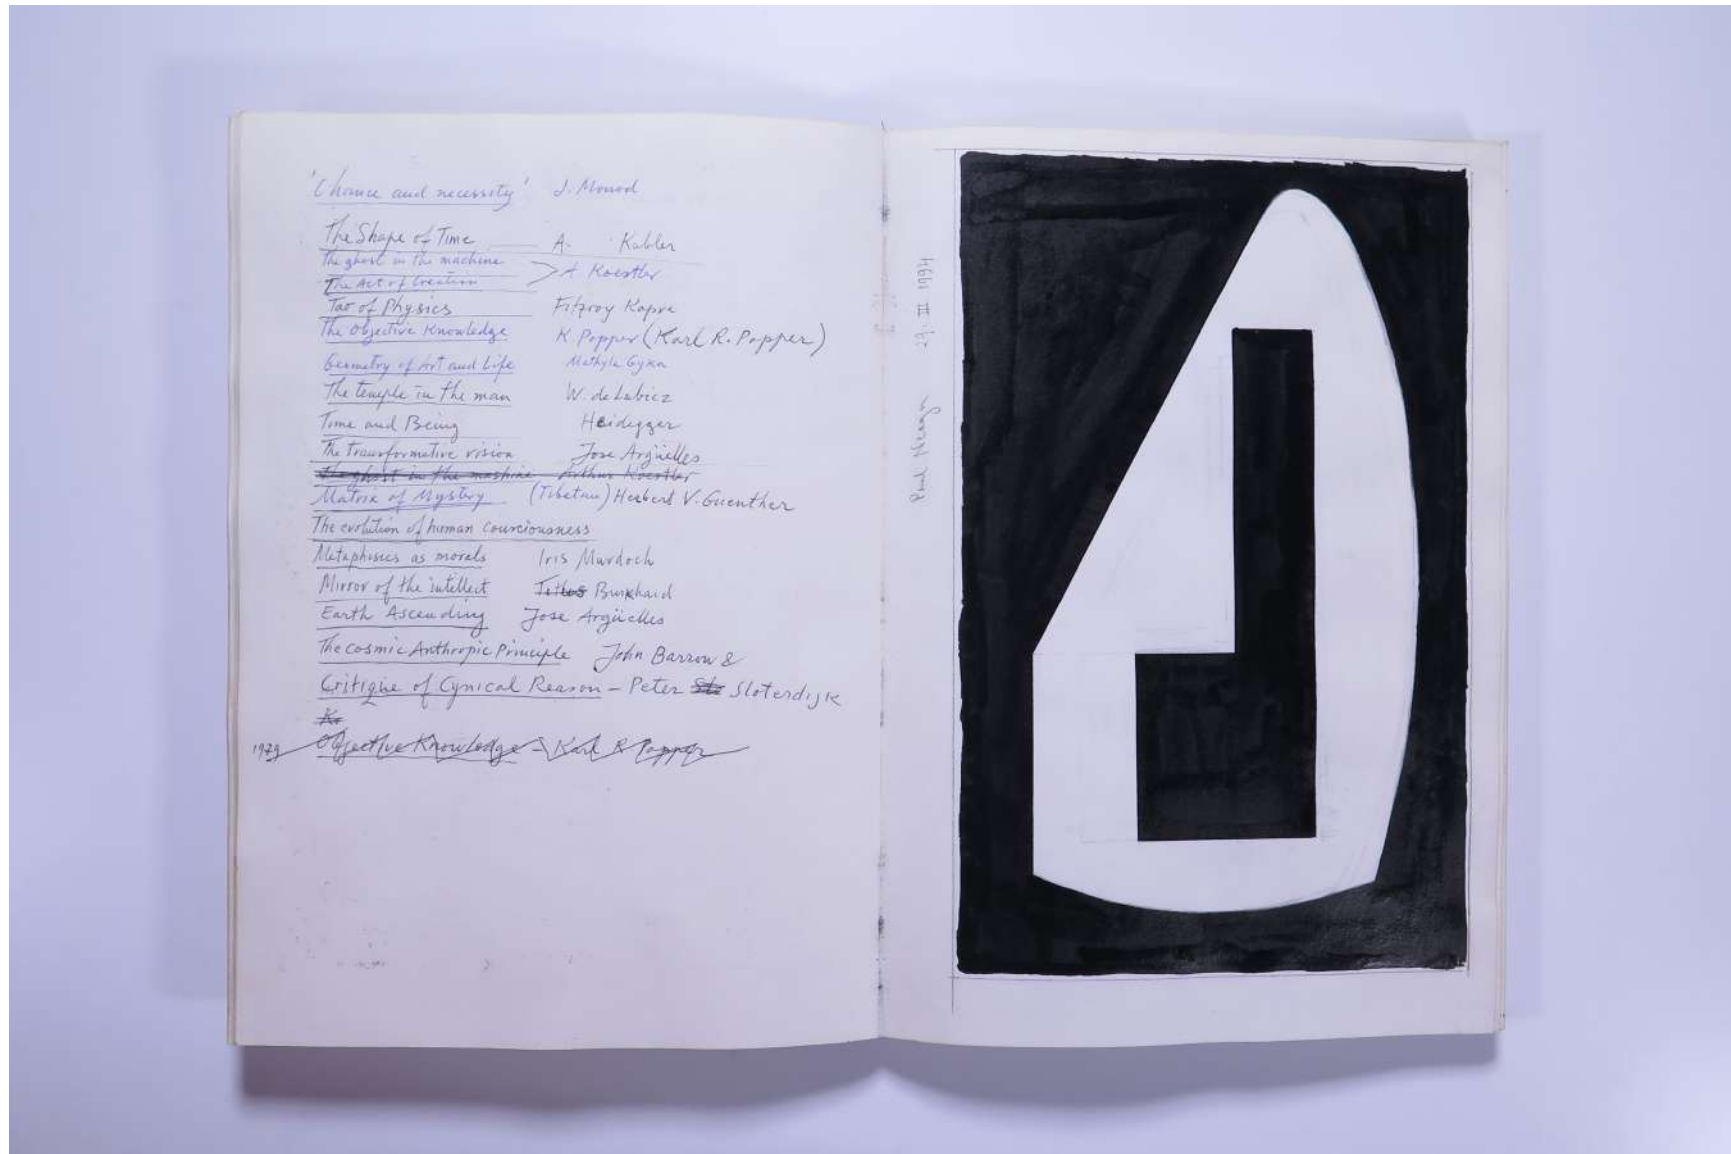 'Chance and necessity' J. Monod
The Shape of Time A. Kubler
The ghost in the machine
The Act of Creation > A Koestler
Tao of Physics Fitzroy Kapra
The Objective Knowledge K. Popper (Karl R. Popper)
Geometry of Art and Life Mathyla Gyka
The temple in the man W. de Lubicz
Time and Being Heidegger
The transformative vision Jose Argüelles
the ghost in the machine Arthur Koestler
Matrix of Mystery (Tibetan) Herbert V. Guenther
The evolution of human counciousness
Metaphisics as morals Iris Murdoch
Mirror of the intellect Titus Burkhaid
Earth Ascending Jose Argüelles
The cosmic Anthropic Principle John Barrow &
Critique of Cynical Reason - Peter Slo Sloterdijk
K.
1979 Objective Knowledge - Karl R Popper
29. III 1994